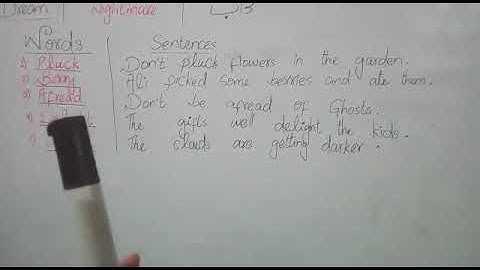 Dream Nightmare
Words Sentences
1) Pluck Don't pluck flowers in the garden.
2) Berry Ali picked some berries and ate them.
3) Afread Don't be afread of Ghosts.
The gifts well delight the kids.
The clouds are getting darker.